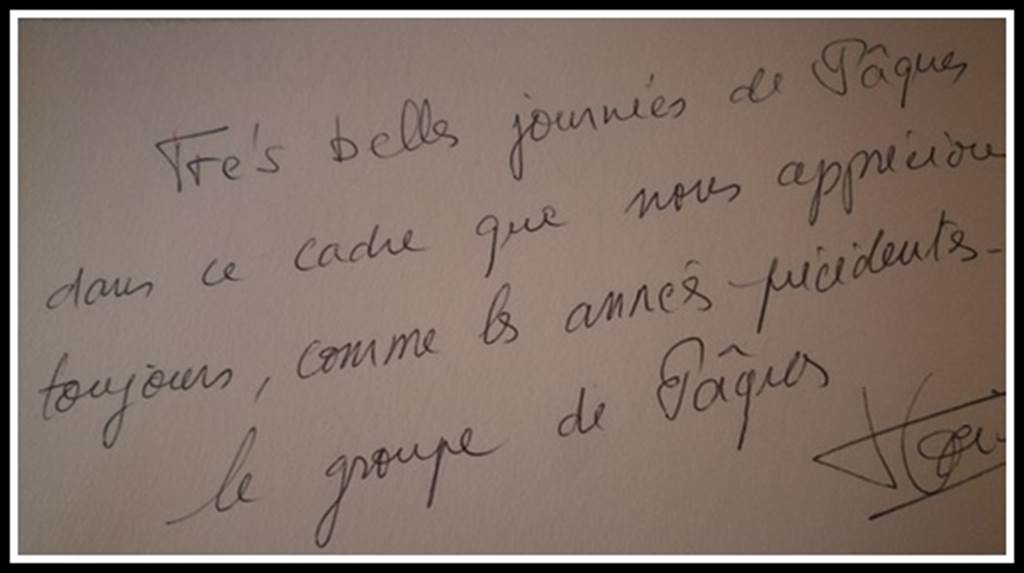 Très belles journées de Pâques
dans ce cadre que nous apprécion
toujours, comme les années précédentes.
le groupe de Pâques